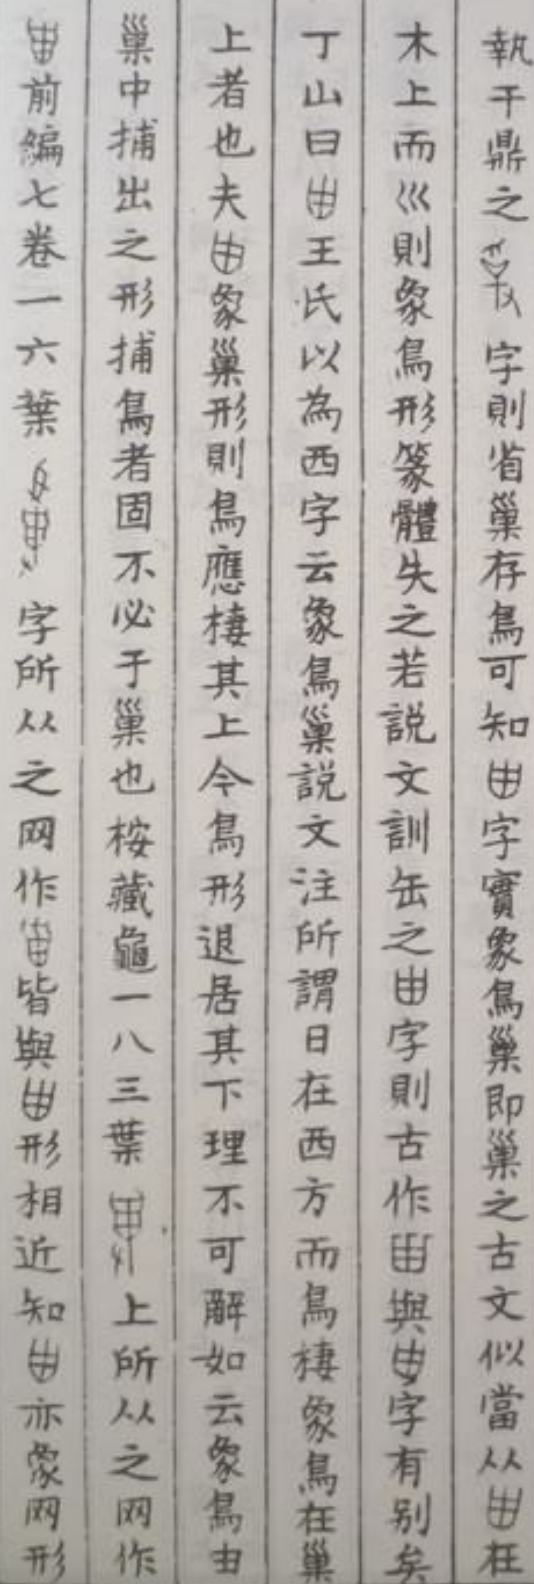 執干鼎之字則省巢存鳥可知甶字實象鳥巢即巢之古文似當从甶在
木上而巛則象鳥形篆體失之若説文訓缶之甶字則古作與字有别矣
丁山曰甶王氏以為西字云象鳥巢説文注所謂日在西方而鳥棲象鳥在巢
上者也夫甶象巢形則鳥應棲其上今鳥形退居其下理不可解如云象鳥由
巢中捕出之形捕鳥者固不必于巢也桉藏龜一八三葉上所从之网作
前編七卷一六葉字所从之网作皆與甶形相近知甶亦象网形